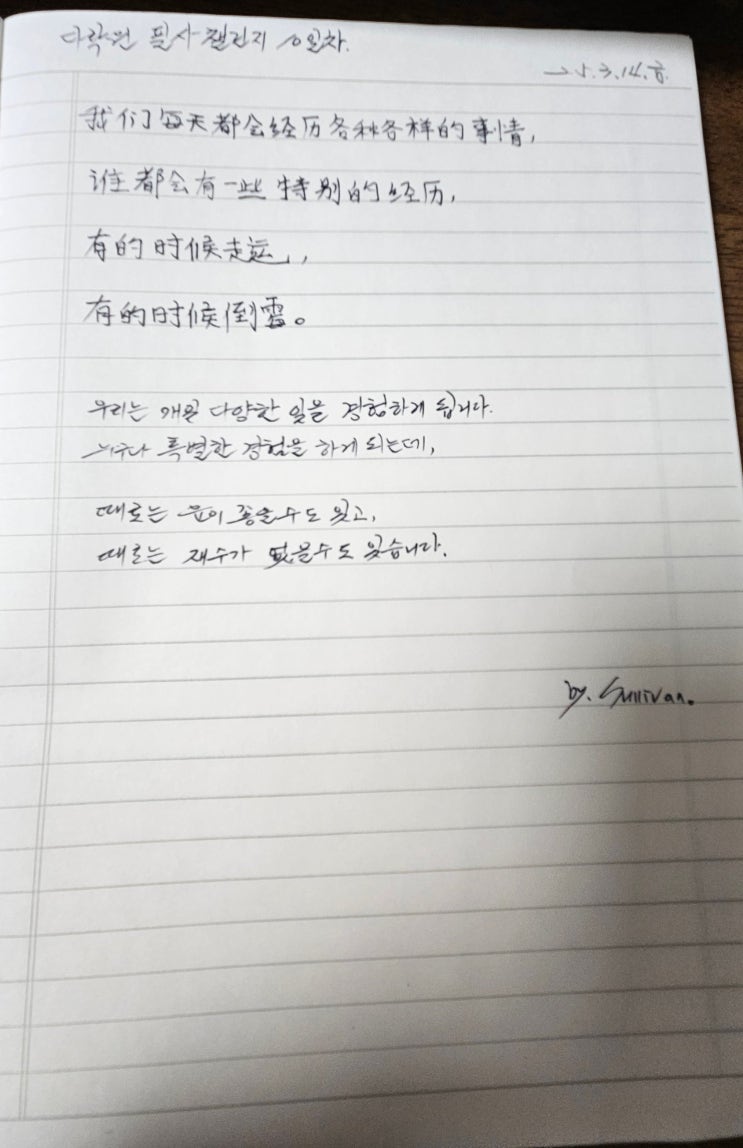 다락원 필사 챌린지 10일차.
25.3.14.금.
我们每天都会经历各种各样的事情,
谁都会有一些特别的经历,
有的时候走运,
有的时候倒霉。
우리는 매일 다양한 일을 경험하게 됩니다.
누구나 특별한 경험을 하게 되는데,
때로는 운이 좋을수도 있고,
때로는 재수가 없을수도 있습니다.
by. Sullivan.